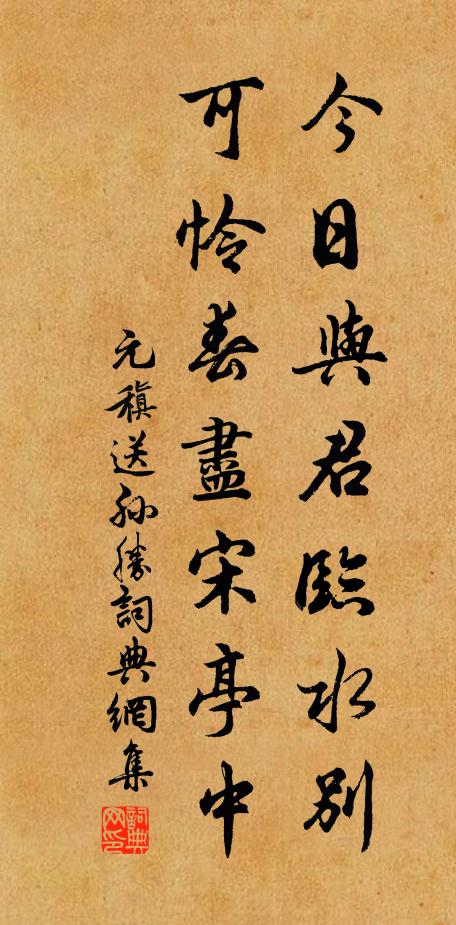 今日與君臨水別
可憐春盡宋亭中
元稹送孫勝詞典網集
詞典网印